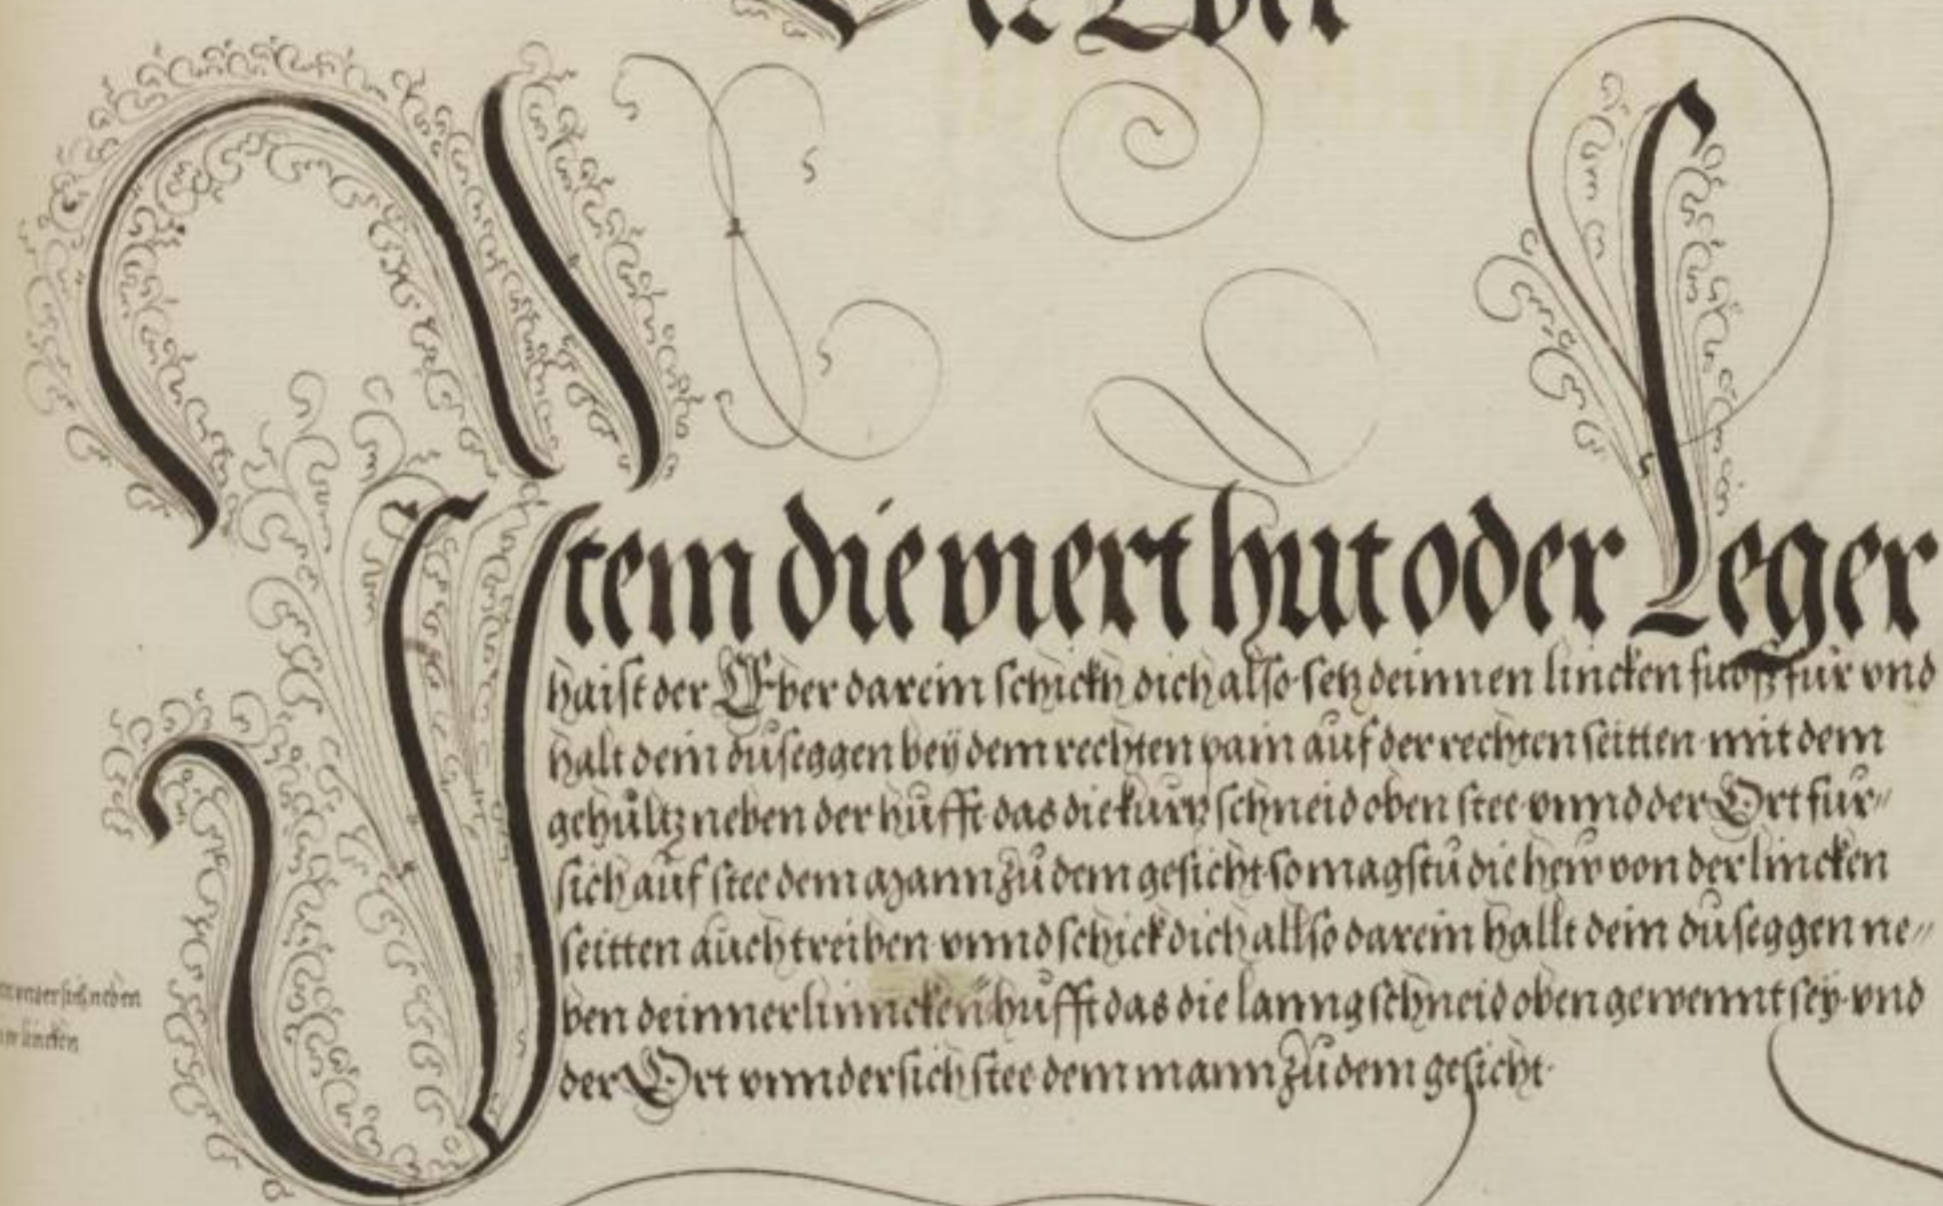 der Eber
Item die viert hut oder Leger
haist der Eber darein schickh dich also· setz deinnen lincken fuoß für vnd
halt dein duseggen beÿ dem rechten pain auf der rechten seitten· mit dem
gehültz neben der hüfft· das die kurtz schneid oben stee· vnnd der Ort für〃
sich auf stee dem Mann zu dem gesicht· so magstu die hew von der lincken
seitten auch treiben· vnnd schick dich allso darein hallt dein duseggen ne〃
ben deinner linncken hufft das die lanng schneid oben gewennt seÿ· vnd
vnndersich neben
der lincken
der Ort vnndersich stee dem mann zu dem gesicht·